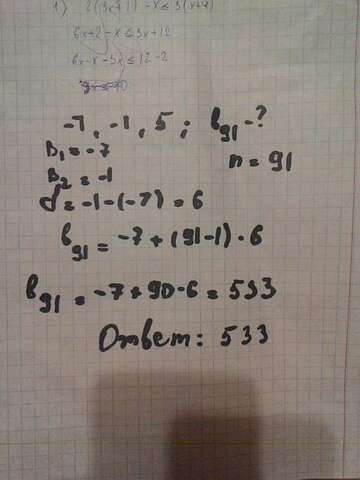 1) 2(3x+1)-x≤3(x+4)
6x+2-x≤3x+12
6x-x-3x≤12-2
-7, -1, 5; b₉₁-?
B₁=-7
n=91
B₂=-1
d=-1-(-7)=6
b₉₁=-7+(91-1)·6
b₉₁=-7+90·6=533
Ответ: 533